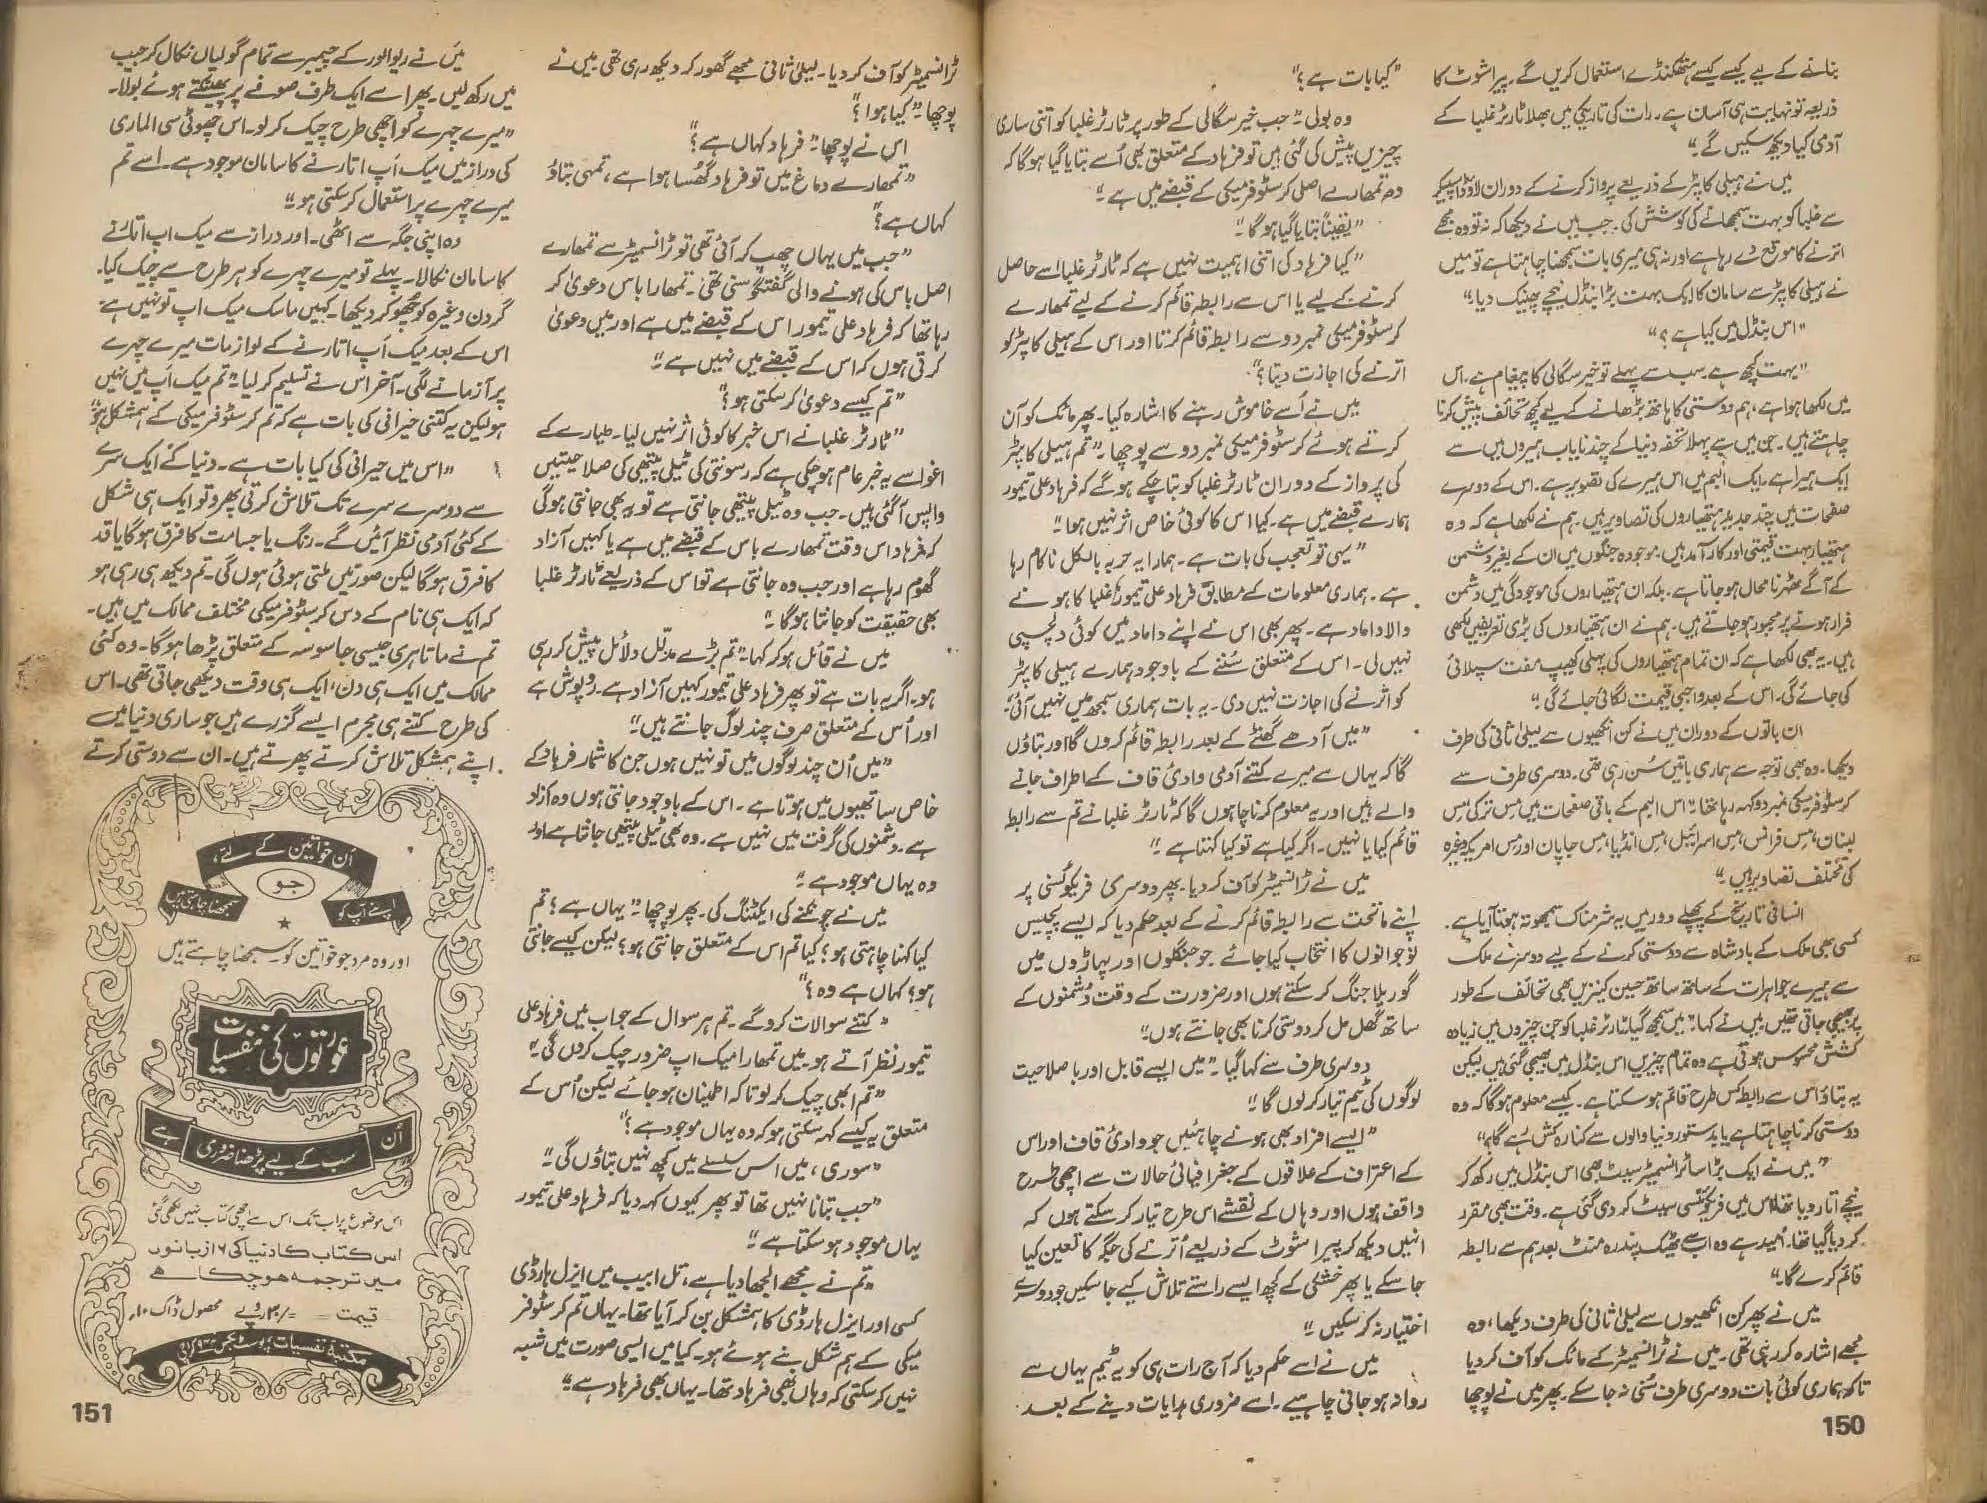 بنانے کے لیے کیسے کیسے ہتھکنڈے استعمال کریں گے۔ پیراشوٹ کا
ذریعہ تو نہایت ہی آسان ہے۔ رات کی تاریکی میں بھلا ٹارٹر غلبا کے
آدمی کیا دیکھ سکیں گے۔"
میں نے ہیلی کاپٹر کے ذریعے پرواز کرنے کے دوران لاؤڈ اسپیکر
سے غلبا کو بہت سمجھانے کی کوشش کی۔ جب میں نے دیکھا کہ نہ تو وہ مجھے
اترنے کا موقع دے رہا ہے اور نہ ہی میری بات سمجھنا چاہتا ہے تو میں
نے ہیلی کاپٹر سے سامان کا ایک بہت بڑا بنڈل نیچے پھینک دیا۔"
"اس بنڈل میں کیا ہے؟"
"بہت کچھ ہے۔ سب سے پہلے تو خیر سگالی کا پیغام ہے۔ اس
میں لکھا ہوا ہے، ہم دوستی کا ہاتھ بڑھانے کے لیے کچھ تحائف پیش کرنا
چاہتے ہیں۔ جن میں سے پہلا تحفہ دنیا کے چند نایاب ہیروں میں سے
ایک ہیرا ہے۔ ایک البم میں اس ہیرے کی تصویر ہے۔ اس کے دوسرے
صفحات میں چند جدید ہتھیاروں کی تصاویر ہیں۔ ہم نے لکھا ہے کہ وہ
ہتھیار بہت قیمتی اور کارآمد ہیں۔ موجودہ جنگوں میں ان کے بغیر دشمن
کے آگے ٹھہرنا محال ہو جاتا ہے۔ بلکہ ان ہتھیاروں کی موجودگی میں دشمن
فرار ہونے پر مجبور ہو جاتے ہیں۔ ہم نے ان ہتھیاروں کی بڑی تعریفیں لکھی
ہیں۔ یہ بھی لکھا ہے کہ ان تمام ہتھیاروں کی پہلی کھیپ مفت سپلائی
کی جائے گی۔ اس کے بعد واجبی قیمت لگائی جائے گی۔"
ان باتوں کے دوران میں نے کن انکھیوں سے لیلیٰ ثانی کی طرف
دیکھا۔ وہ بھی توجہ سے ہماری باتیں سُن رہی تھی۔ دوسری طرف سے
کرسٹوفر میکی نمبر دو کہہ رہا تھا۔ "اس البم کے باقی صفحات میں مِس ترکی مِس
لبنان، مِس فرانس، مِس اسرائیل، مِس انڈیا، مِس جاپان اور مِس امریکہ وغیرہ
کی مختلف تصاویر ہیں۔"
انسانی تاریخ کے پچھلے دور میں یہ شرمناک سمجھوتہ ہوتا آیا ہے۔
کسی بھی ملک کے بادشاہ سے دوستی کرنے کے لیے دوسرے ملک
سے ہیرے جواہرات کے ساتھ ساتھ حسین کنیزیں بھی تحائف کے طور
پر بھیجی جاتی تھیں۔ میں نے کہا۔ "میں سمجھ گیا۔ ٹارٹر غلبا کو جن چیزوں میں زیادہ
کشش محسوس ہوتی ہے وہ تمام چیزیں اس بنڈل میں بھیجی گئی ہیں لیکن
یہ بتاؤ اس سے رابطہ کس طرح قائم ہو سکتا ہے۔ کیسے معلوم ہوگا کہ وہ
دوستی کرنا چاہتا ہے یا بدستور دنیا والوں سے کنارہ کش رہے گا؟"
"میں نے ایک بڑا سا ٹرانسمیٹر سیٹ بھی اس بنڈل میں رکھ کر
نیچے اتار دیا تھا۔ اس میں فریکوئنسی سیٹ کر دی گئی ہے۔ وقت بھی مقرر
کر دیا گیا تھا۔ اُمید ہے وہ اب سے ٹھیک پندرہ منٹ بعد ہم سے رابطہ
قائم کرے گا۔"
میں نے پھر کن انکھیوں سے لیلیٰ ثانی کی طرف دیکھا، وہ
مجھے اشارہ کر رہی تھی۔ میں نے ٹرانسمیٹر کے مائک کو آف کر دیا
تاکہ ہماری کوئی بات دوسری طرف سُنی نہ جا سکے۔ پھر میں نے پوچھا
150
"کیا بات ہے؟"
وہ بولی۔ "جب خیر سگالی کے طور پر ٹارٹر غلبا کو اتنی ساری
چیزیں پیش کی گئی ہیں تو فرہاد کے متعلق بھی اُسے بتایا گیا ہوگا کہ
وہ تمھارے اصل کرسٹوفر میکی کے قبضے میں ہے۔"
"یقیناً بتایا گیا ہوگا۔"
"کیا فرہاد کی اتنی اہمیت نہیں ہے کہ ٹارٹر غلبا اُسے حاصل
کرنے کے لیے یا اس سے رابطہ قائم کرنے کے لیے تمھارے
کرسٹوفر میکی نمبر دو سے رابطہ قائم کرتا اور اس کے ہیلی کاپٹر کو
اترنے کی اجازت دیتا؟"
میں نے اُسے خاموش رہنے کا اشارہ کیا۔ پھر مائک کو آن
کرتے ہوئے کرسٹوفر میکی نمبر دو سے پوچھا۔ "تم ہیلی کاپٹر
کی پرواز کے دوران ٹارٹر غلبا کو بتا چکے ہوگے کہ فرہاد علی تیمور
ہمارے قبضے میں ہے۔ کیا اس کا کوئی خاص اثر نہیں ہوا"
"یہی تو تعجب کی بات ہے۔ ہمارا یہ حربہ بالکل ناکام رہا
ہے۔ ہماری معلومات کے مطابق فرہاد علی تیمور غلبا کا ہونے
والا داماد ہے۔ پھر بھی اس نے اپنے داماد میں کوئی دلچسپی
نہیں لی۔ اس کے متعلق سُننے کے باوجود ہمارے ہیلی کاپٹر
کو اترنے کی اجازت نہیں دی۔ یہ بات ہماری سمجھ میں نہیں آئی۔"
"میں آدھے گھنٹے کے بعد رابطہ قائم کروں گا اور بتاؤں
گا کہ یہاں سے میرے کتنے آدمی وادیٔ قاف کے اطراف جانے
والے ہیں اور یہ معلوم کرنا چاہوں گا کہ ٹارٹر غلبا نے تم سے رابطہ
قائم کیا یا نہیں۔ اگر کیا ہے تو کیا کہتا ہے۔"
میں نے ٹرانسمیٹر کو آف کر دیا۔ پھر دوسری فریکوئنسی پر
اپنے ماتحت سے رابطہ قائم کرنے کے بعد حکم دیا کہ ایسے پچیس
نوجوانوں کا انتخاب کیا جائے جو جنگلوں اور پہاڑوں میں
گوریلا جنگ کر سکتے ہوں اور ضرورت کے وقت دُشمنوں کے
ساتھ گھل مل کر دوستی کرنا بھی جانتے ہوں۔"
دوسری طرف سے کہا گیا۔ "میں ایسے قابل اور باصلاحیت
لوگوں کی ٹیم تیار کر لوں گا۔"
"ایسے افراد بھی ہونے چاہئیں جو وادیٔ قاف اور اس
کے اعتراف کے علاقوں کے جغرافیائی حالات سے اچھی طرح
واقف ہوں اور وہاں کے نقشے اس طرح تیار کر سکتے ہوں کہ
انہیں دیکھ کر پیراشوٹ کے ذریعے اُترنے کی جگہ کا تعین کیا
جا سکے یا پھر خشکی کے کچھ ایسے راستے تلاش کیے جا سکیں جو دوسرے
اختیار نہ کر سکیں۔"
میں نے اسے حکم دیا کہ آج رات ہی کو یہ ٹیم یہاں سے
روانہ ہو جانی چاہیے۔ اسے ضروری ہدایات دینے کے بعد
ٹرانسمیٹر کو آف کر دیا۔ لیلیٰ ثانی مجھے گھور کر دیکھ رہی تھی میں نے
پوچھا۔ "کیا ہوا؟"
اس نے پوچھا۔ "فرہاد کہاں ہے؟"
"تمھارے دماغ میں تو فرہاد گھُسا ہوا ہے، تمہی بتاؤ
کہاں ہے؟"
"جب میں یہاں چھپ کر آئی تھی تو ٹرانسمیٹر سے تمھارے
اصل باس کی ہونے والی گفتگو سنی تھی۔ تمھارا باس دعویٰ کر
رہا تھا کہ فرہاد علی تیمور اس کے قبضے میں ہے اور میں دعویٰ
کرتی ہوں کہ اس کے قبضے میں نہیں ہے۔"
"تم کیسے دعویٰ کر سکتی ہو؟"
"ٹارٹر غلبا نے اس خبر کا کوئی اثر نہیں لیا۔ طیارے کے
اغوا سے یہ خبر عام ہو چکی ہے کہ رسونتی کی ٹیلی پیتھی کی صلاحیتیں
واپس آ گئی ہیں۔ جب وہ ٹیلی پیتھی جانتی ہے تو یہ بھی جانتی ہوگی
کہ فرہاد اس وقت تمھارے باس کے قبضے میں ہے یا کہیں آزاد
گھوم رہا ہے اور جب وہ جانتی ہے تو اس کے ذریعے ٹارٹر غلبا
بھی حقیقت کو جانتا ہوگا۔"
میں نے قائل ہو کر کہا۔ "تم بڑے مدلّل دلائل پیش کر رہی
ہو۔ اگر یہ بات ہے تو پھر فرہاد علی تیمور کہیں آزاد ہے۔ روپوش ہے
اور اُس کے متعلق صرف چند لوگ جانتے ہیں۔"
"میں اُن چند لوگوں میں تو نہیں ہوں جن کا شمار فرہاد کے
خاص ساتھیوں میں ہوتا ہے۔ اس کے باوجود جانتی ہوں وہ آزاد
ہے۔ دشمنوں کی گرفت میں نہیں ہے۔ وہ بھی ٹیلی پیتھی جانتا ہے اور
وہ یہاں موجود ہے۔"
میں نے چونکنے کی ایکٹنگ کی۔ پھر پوچھا۔ "یہاں ہے؟ تم
کیا کہنا چاہتی ہو؟ کیا تم اس کے متعلق جانتی ہو؟ لیکن کیسے جانتی
ہو؟ کہاں ہے وہ؟"
"کتنے سوالات کرو گے۔ تم ہر سوال کے جواب میں فرہاد علی
تیمور نظر آتے ہو۔ میں تمھارا میک اپ ضرور چیک کروں گی۔"
"تم ابھی چیک کر لو تاکہ اطمینان ہو جائے لیکن اُس کے
متعلق یہ کیسے کہہ سکتی ہو کہ وہ یہاں موجود ہے؟"
"سوری، میں اس سلسلے میں کچھ نہیں بتاؤں گی۔"
"جب بتانا نہیں تھا تو پھر کیوں کہہ دیا کہ فرہاد علی تیمور
یہاں موجود ہو سکتا ہے۔"
"تم نے مجھے الجھا دیا ہے، تل ابیب میں ایزل ہارڈی
کسی اور ایزل ہارڈی کا ہمشکل بن کر آیا تھا۔ یہاں تم کرسٹوفر
میکی کے ہم شکل بنے ہوئے ہو۔ کیا میں ایسی صورت میں شبہ
نہیں کر سکتی کہ وہاں بھی فرہاد تھا۔ یہاں بھی فرہاد ہے۔"
میں نے ریوالور کے چیمبر سے تمام گولیاں نکال کر جیب
میں رکھ لیں۔ پھر اسے ایک طرف صوفے پر پھینکتے ہوئے بولا۔
"میرے چہرے کو اچھی طرح چیک کر لو۔ اس چھوٹی سی الماری
کی دراز میں میک اَپ اتارنے کا سامان موجود ہے۔ اسے تم
میرے چہرے پر استعمال کر سکتی ہو۔"
وہ اپنی جگہ سے اٹھی۔ اور دراز سے میک اپ اتارنے
کا سامان نکالا۔ پہلے تو میرے چہرے کو ہر طرح سے چیک کیا۔
گردن وغیرہ کو چھُو کر دیکھا۔ کہیں ماسک میک اپ تو نہیں ہے۔
اس کے بعد میک اَپ اتارنے کے لوازمات میرے چہرے
پر آزمانے لگی۔ آخر اس نے تسلیم کر لیا۔ "تم میک اَپ میں نہیں
ہو لیکن یہ کتنی حیرانی کی بات ہے کہ تم کرسٹوفر میکی کے ہمشکل ہو"
"اس میں حیرانی کی کیا بات ہے۔ دنیا کے ایک سرے
سے دوسرے سرے تک تلاش کرتی پھرو تو ایک ہی شکل
کے کئی آدمی نظر آئیں گے۔ رنگ یا جسامت کا فرق ہوگا یا قد
کا فرق ہوگا لیکن صورتیں ملتی ہوئی ہوں گی۔ تم دیکھ ہی رہی ہو
کہ ایک ہی نام کے دس کرسٹوفر میکی مختلف ممالک میں ہیں۔
تم نے ماتا ہری جیسی جاسوسہ کے متعلق پڑھا ہوگا۔ وہ کئی
ممالک میں ایک ہی دن، ایک ہی وقت دیکھی جاتی تھی۔ اس
کی طرح کتنے ہی مجرم ایسے گزرے ہیں جو ساری دنیا میں
اپنے ہمشکل تلاش کرتے پھرتے ہیں۔ ان سے دوستی کرتے
اُن خواتین کے لئے،
جو
اپنے آپ کو
سمجھنا چاہتی ہیں
اور وہ مرد جو خواتین کو سمجھنا چاہتے ہیں
عورتوں کی نفسیات
اُن سب کے لیے پڑھنا ضروری ہے
اس موضوع پر اب تک اس سے اچھی کتاب نہیں لکھی گئی
اس کتاب کا دنیا کی ۱۶ زبانوں
میں ترجمہ ہو چکا ہے
قیمت = /۲۰ روپے محصول ڈاک ۱۰/
مکتبہ نفسیات پوسٹ بکس کراچی
151